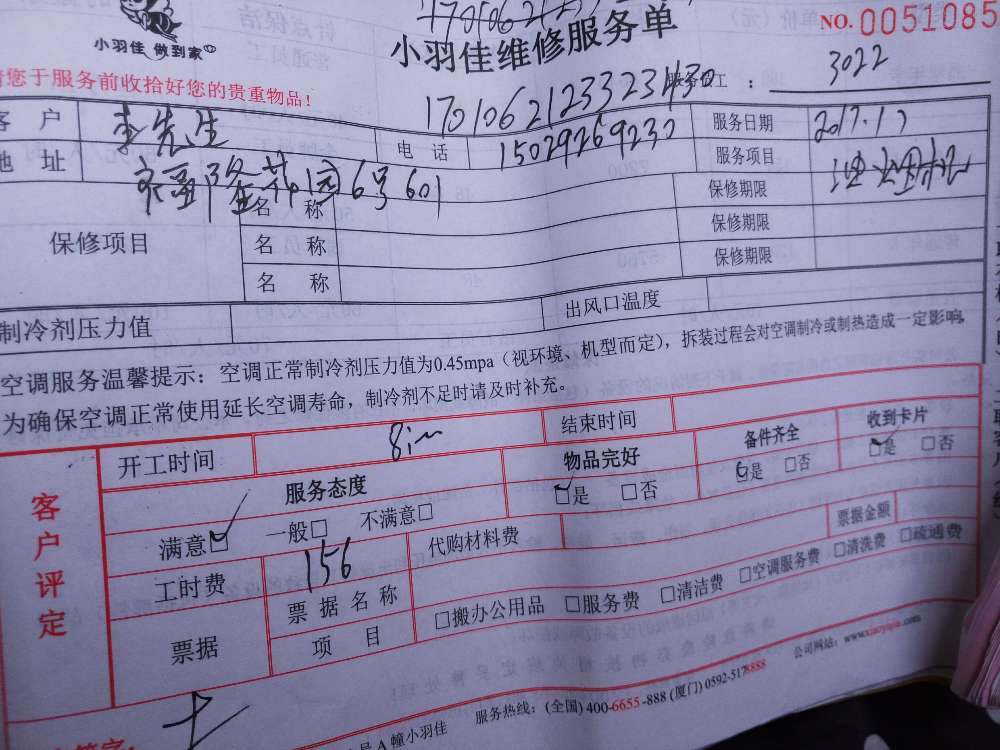 小羽佳 做到家
小羽佳维修服务单
NO.0051085
请您于服务前收拾好您的贵重物品!
服务员工 : 3022
170106212332343
客 户 李先生 电 话 15029269230 服务日期 2017.1.7
地 址 6号601 服务项目
保修项目
名 称 保修期限
名 称 保修期限
名 称 保修期限
制冷剂压力值 出风口温度
空调服务温馨提示：空调正常制冷剂压力值为0.45mpa（视环境、机型而定），拆装过程会对空调制冷或制热造成一定影响，
为确保空调正常使用延长空调寿命，制冷剂不足时请及时补充。
客户评定
开工时间 结束时间
服务态度 物品完好 备件齐全 收到卡片
满意□ 一般□ 不满意□ □是 □否 □是 □否 □是 □否
工时费 156 代购材料费 票据金额
票据 票据名称
项 目 □搬办公用品 □服务费 □清洁费 □空调服务费 □清洗费 □疏通费
A幢小羽佳 服务热线：(全国) 400-6655-888 (厦门) 0592-5178888 公司网站：www.xiaoyujia.com